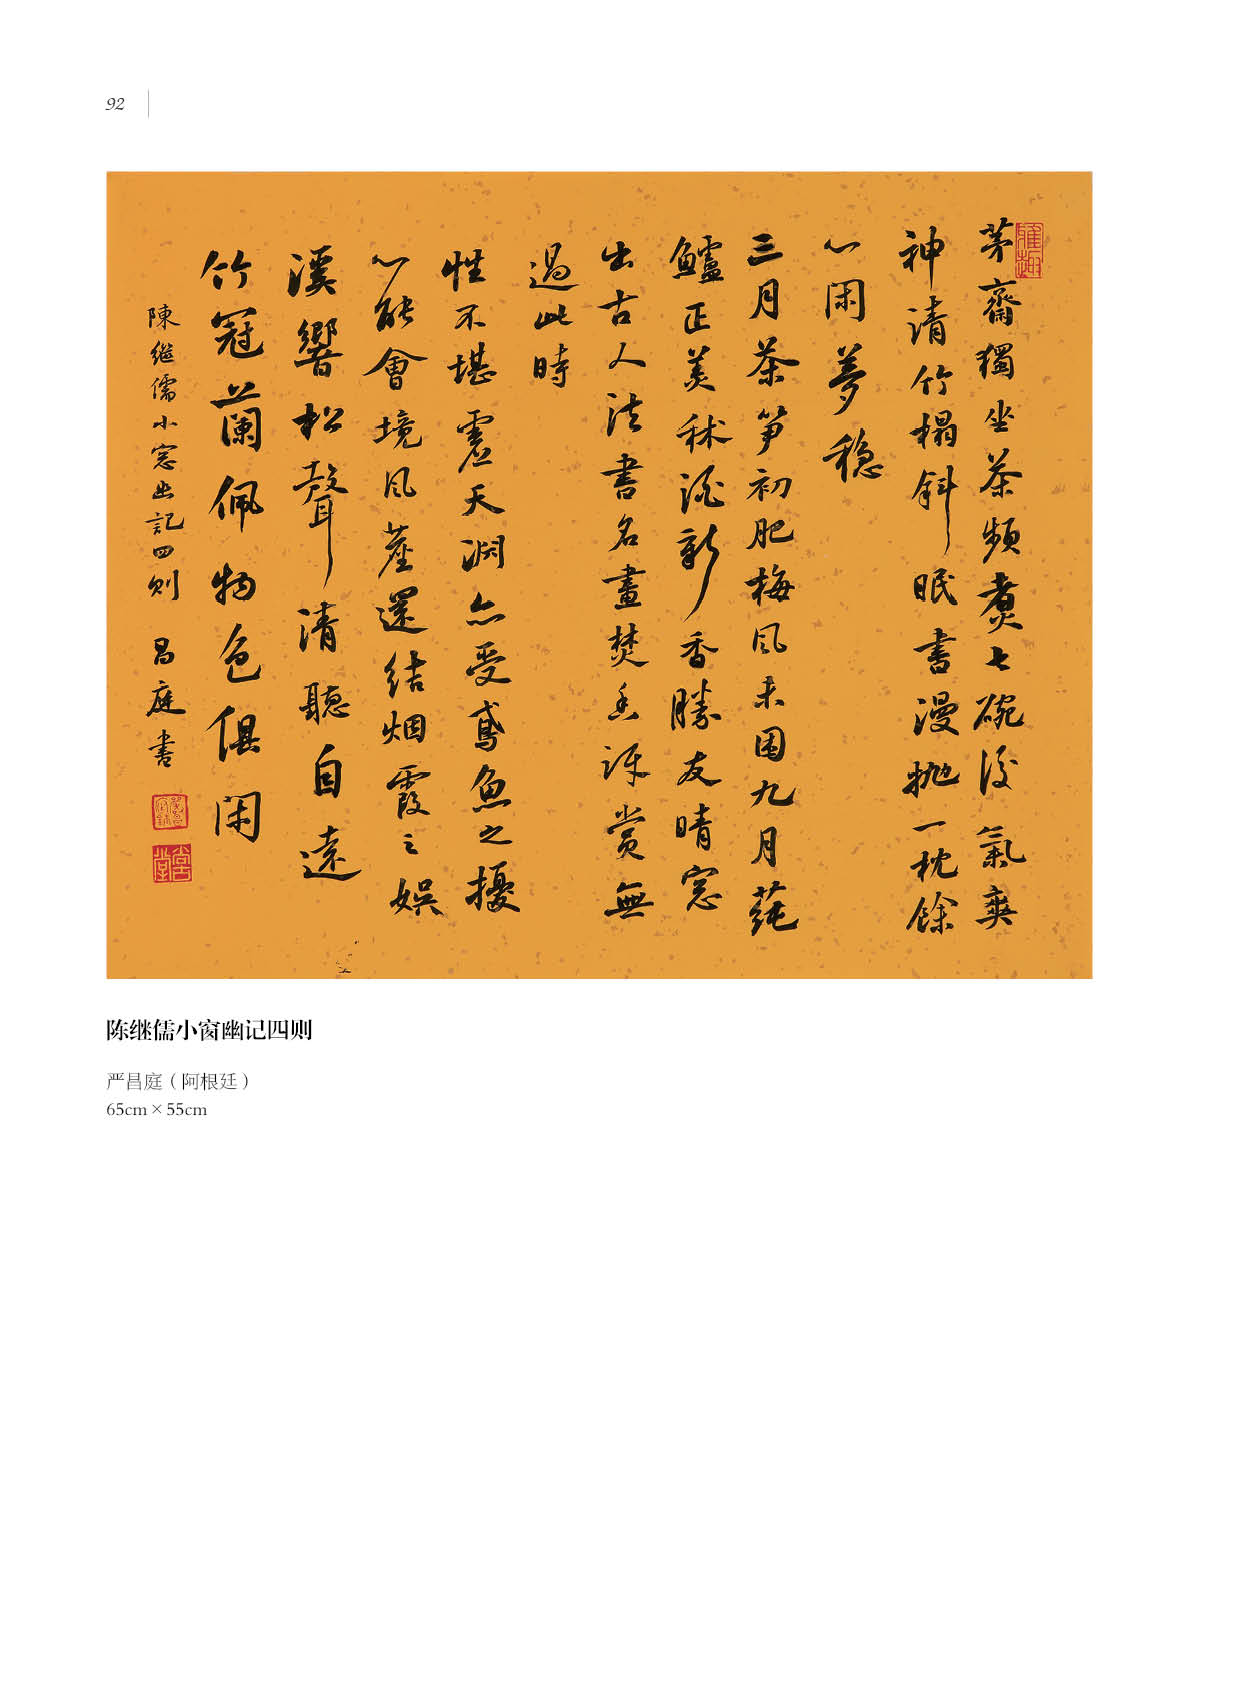 92
茅齋獨坐茶頻煮七碗後氣爽
神清竹榻斜眠書漫拋一枕餘
心閑夢穩
三月茶笋初肥梅風未困九月蓴
鱸正美秫酒新香勝友晴窓
出古人法書名畫焚香評賞無
過此時
性不堪虛天淵亦受鳶魚之擾
心能會境風塵還結烟霞之娛
溪響松聲清聽自遠
竹冠蘭佩物色俱閑
陳繼儒小窓幽記四則 昌庭書
雅趣
陈继儒小窗幽记四则
严昌庭（阿根廷）
65cm × 55cm